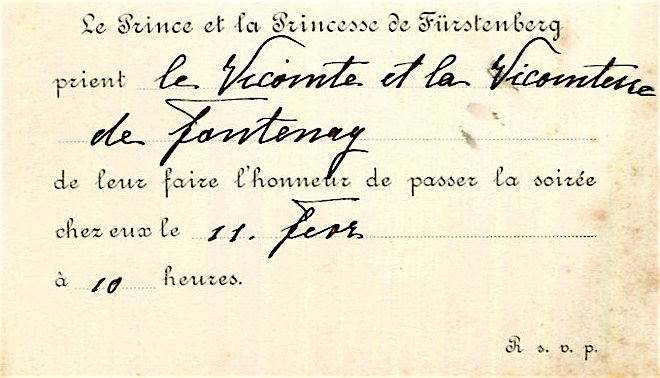 Le Prince et la Princesse de Fürstenberg
prient le Vicomte et la Vicomtesse
de Fontenay
de leur faire l'honneur de passer la soirée
chez eux le 11. Fevr
à 10 heures.
R s. v. p.